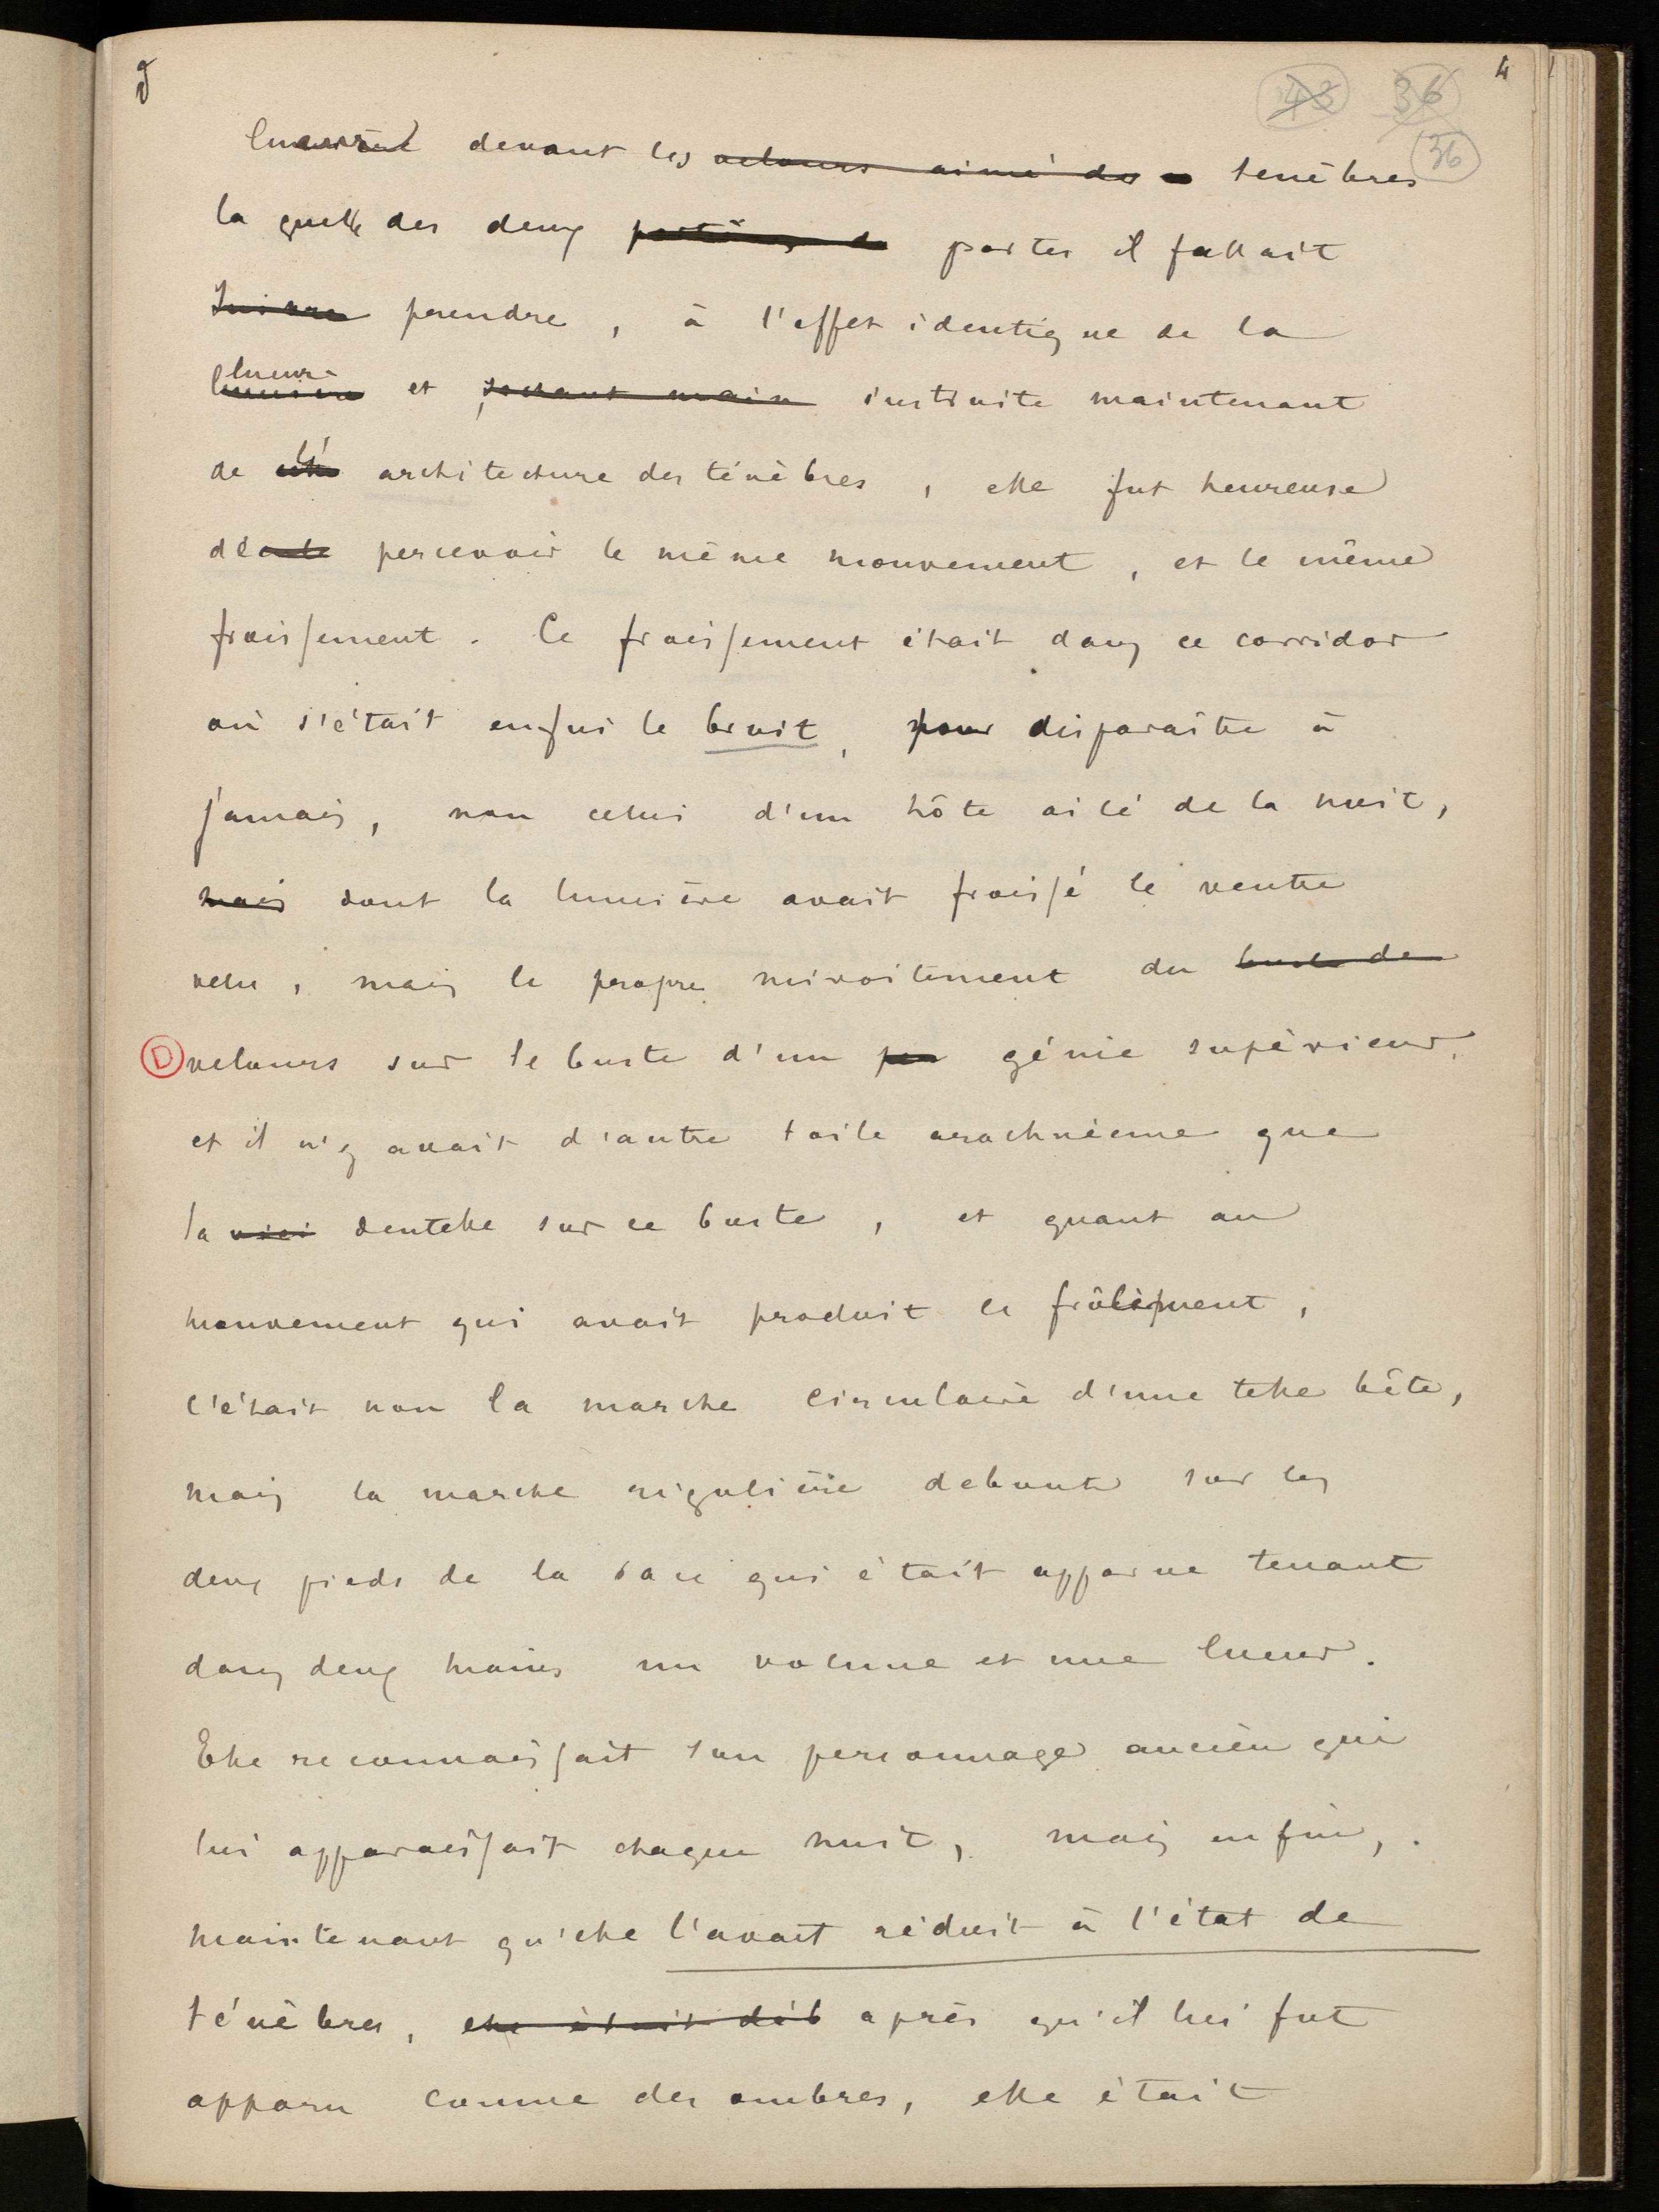 g
4
43 36
36
lumière devant les velours aimé des ténèbres
la quelle des deux portes il fallait
suivre prendre, à l'effet identique de la
lueur
lumière et sachant main instruite maintenant
de l' architecture des ténèbres, elle fut heureuse
de percevoir le même mouvement, et le même
froissement. Ce froissement était dans ce corridor
où s'était enfui le bruit, pour disparaître à
jamais, non celui d'un hôte ailé de la nuit,
mais dont la lumière avait froissé le ventre
velu, mais le propre miroitement du buste de
D velours sur le buste d'un génie supérieur,
et il n'y avait d'autre toile arachnéenne que
la dentelle sur ce buste, et quant au
mouvement qui avait produit ce frôlement,
c'était non la marche circulaire d'une telle bête,
mais la marche régulière debout sur les
deux pieds de la race qui était apparue tenant
dans deux mains un volume et une lueur.
Elle reconnaissait son personnage ancien qui
lui apparaissait chaque nuit, mais enfin,
maintenant qu'elle l'avait réduit à l'état de
ténèbres, elle était déb après qu'il lui fut
apparu comme des ombres, elle était